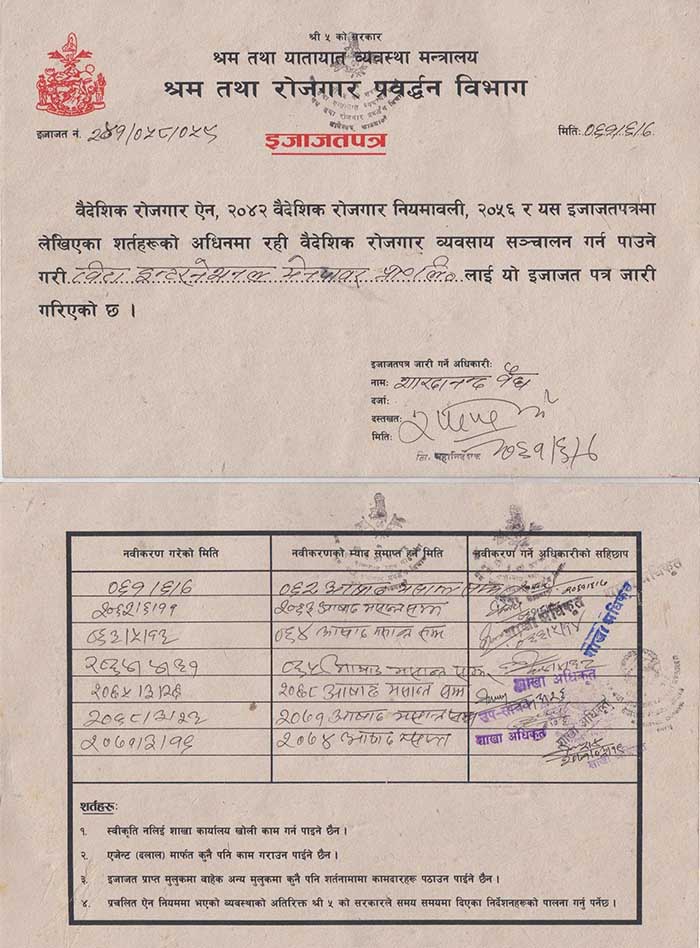 श्री ५ को सरकार
श्रम तथा यातायात व्यवस्था मन्त्रालय
श्रम तथा रोजगार प्रवर्द्धन विभाग
इजाजत नं.
मिति: ०६१।६।६
इजाजतपत्र
वैदेशिक रोजगार ऐन, २०४२ वैदेशिक रोजगार नियमावली, २०५६ र यस इजाजतपत्रमा
लेखिएका शर्तहरूको अधिनमा रही वैदेशिक रोजगार व्यवसाय सञ्चालन गर्न पाउने
गरी इन्टरनेशनल मेनपावर प्रा० लि० लाई यो इजाजत पत्र जारी
गरिएको छ ।
इजाजतपत्र जारी गर्ने अधिकारी:
नाम: शारदानन्द वैद्य
दर्जा:
दस्तखत:
मिति: २०६१।६।६
नि. महानिर्देशक
नवीकरण गरेको मिति नवीकरणको म्याद समाप्त हुने मिति नवीकरण गर्ने अधिकारीको सहिछाप
०६१।६।६ ०६२ आषाढ मसान्त सम्म
२०६२।६।११ २०६३ आषाढ मसान्त सम्म
०६३।५।१३ ०६४ आषाढ मसान्त सम्म
शाखा अधिकृत
शाखा अधिकृत
२०६५।३।२६ २०६८ आषाढ मसान्त सम्म
२०६८।३।२३ २०७१ आषाढ मसान्त सम्म
२०७१।३।१६ २०७४ आषाढ मसान्त
शाखा अधिकृत
शर्तहरू:
१. स्वीकृति नलिई शाखा कार्यालय खोली काम गर्न पाइने छैन ।
२. एजेन्ट (दलाल) मार्फत कुनै पनि काम गराउन पाईने छैन ।
३. इजाजत प्राप्त मुलुकमा वाहेक अन्य मुलुकमा कुनै पनि शर्तनामामा कामदारहरू पठाउन पाईने छैन ।
४. प्रचलित ऐन नियममा भएको व्यवस्थाको अतिरिक्त श्री ५ को सरकारले समय समयमा दिएका निर्देशनहरूको पालना गर्नु पर्नेछ ।